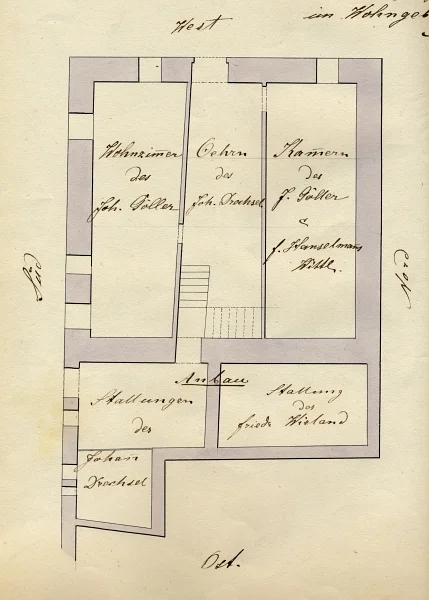 im Wohnge
West
Wohnzimmer
des
Joh. Göller
Oehrn
des
Joh. Drechsel
Kamern
des
J. Göller
&
f. Hanselmans
Wittl.
Süd
Nord
Anbau
Stallungen
des
Johan
Drechsel
Stallung
des
friedr Wieland
Ost.